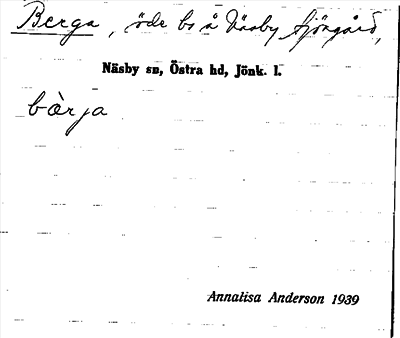 Berga, öde bs å Näsby sjögård,
Näsby sn, Östra hd, Jönk. l.
bàrja
Annalisa Anderson 1939